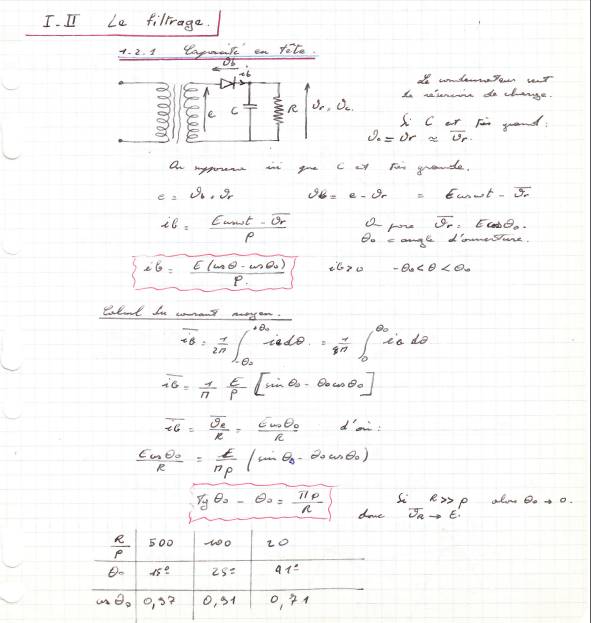 I-II Le filtrage.
1.2.1 Capacité en Tête.
vb ib
e C R vr = vc
Le condensateur sert
de réservoir de charge.
Si C est très grand :
vc = vr ≈ v̅r.
On suppose ici que C est très grande.
e = vb + vr vb = e - vr = E cos ωt - v̅r
ib = (E cos ωt - v̅r) / ρ On pose v̅r = E cos θ0.
θ0 = angle d'ouverture.
ib = E (cos θ - cos θ0) / ρ. ib > 0 -θ0 < θ < θ0
Calcul du courant moyen.
i̅b = 1/2π ∫ -θ0 +θ0 ib dθ = 1/π ∫ 0 θ0 ib dθ
i̅b = 1/π E/ρ [sin θ0 - θ0 cos θ0]
i̅b = v̅r / R = E cos θ0 / R d'où :
E cos θ0 / R = E / πρ (sin θ0 - θ0 cos θ0)
Tg θ0 - θ0 = πρ / R Si R >> ρ alors θ0 → 0.
donc v̅R → E.
R/ρ 500 100 20
θ0 15° 25° 41°
cos θ0 0,97 0,91 0,71